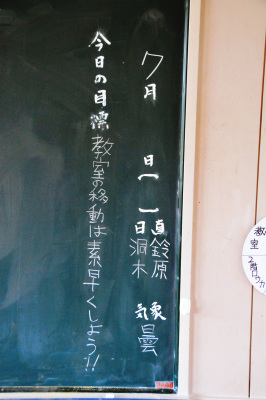 7月 日( )
日直 鈴原
洞木
気象 曇
今日の目標 教室の移動は素早くしよう!!
教室